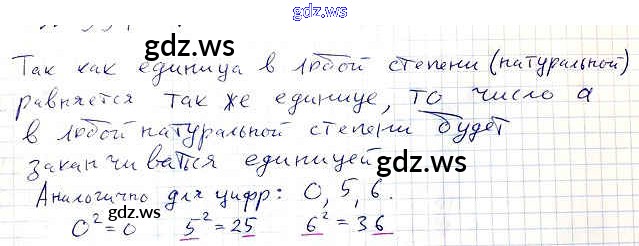 gdz.ws
Так как единица в любой степени (натуральной)
равняется так же единице, то число a
в любой натуральной степени будет
заканчиваться единицей
Аналогично для цифр: 0, 5, 6.
0² = 0 5² = 25 6² = 36
gdz.ws
gdz.ws
gdz.ws
gdz.ws